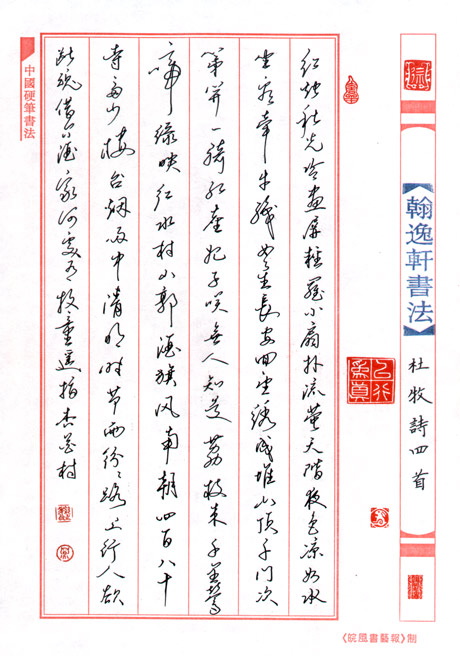 《翰逸軒書法》
杜牧詩四首
红烛秋光冷畫屏轻羅小扇扑流萤天階夜色凉如水
坐看牵牛織女星長安回望绣成堆山顶千门次
第开一骑红塵妃子笑無人知是荔枝来千里莺
啼绿映红水村山郭酒旗风南朝四百八十
寺多少楼台烟雨中清明时节雨纷々路上行人欲
断魂借问酒家何处有牧童遥指杏花村
中國硬筆書法
《皖風書藝報》制